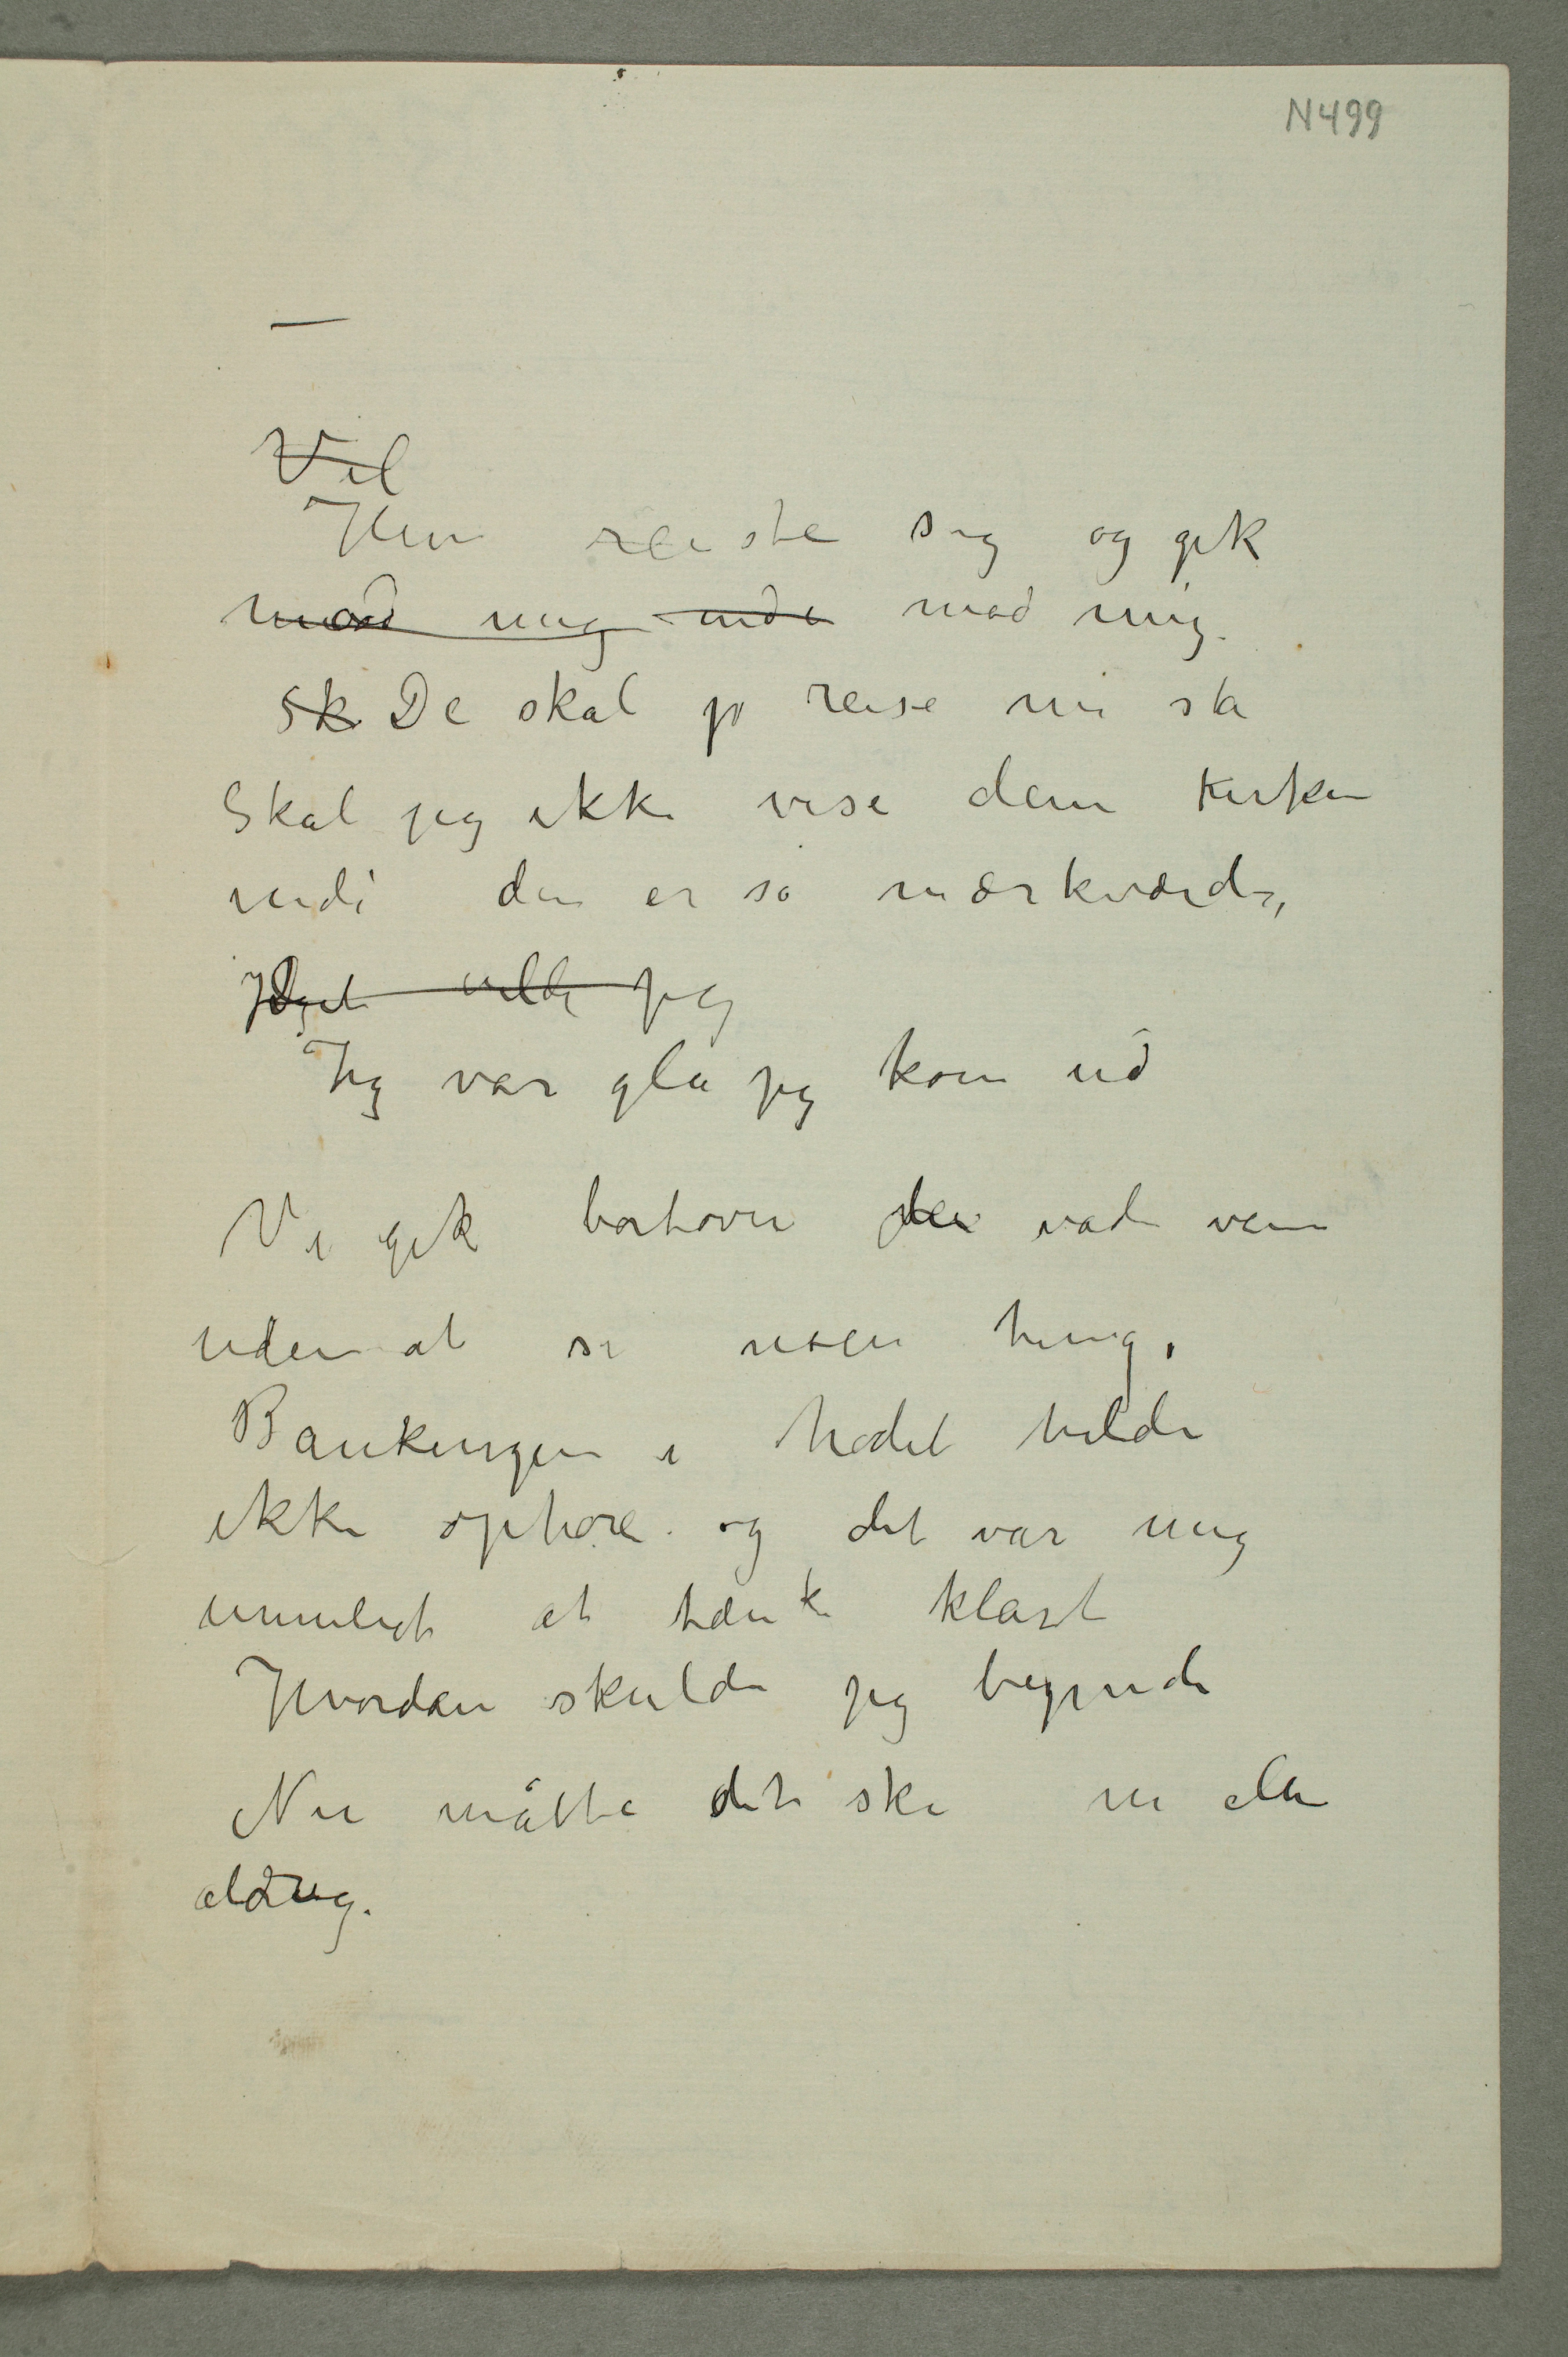 N499
—
Vil
Hun reiste sig og gik
mod mig inde mod mig.
Sk De skal jo reise må sta
Skal jeg ikke vise dem kirken
indi den er så mærkværdi,
vilde jeg
Jeg var gla jeg kom ud
Vi gik bortover den våde vein
uden at si noen ting.
Bankingen i hodet vilde
ikke ophøre. og det var mig
umuligt at tænke klart
Hvordan skulde jeg begynde
Nu måtte det ske nu eller
aldrig.